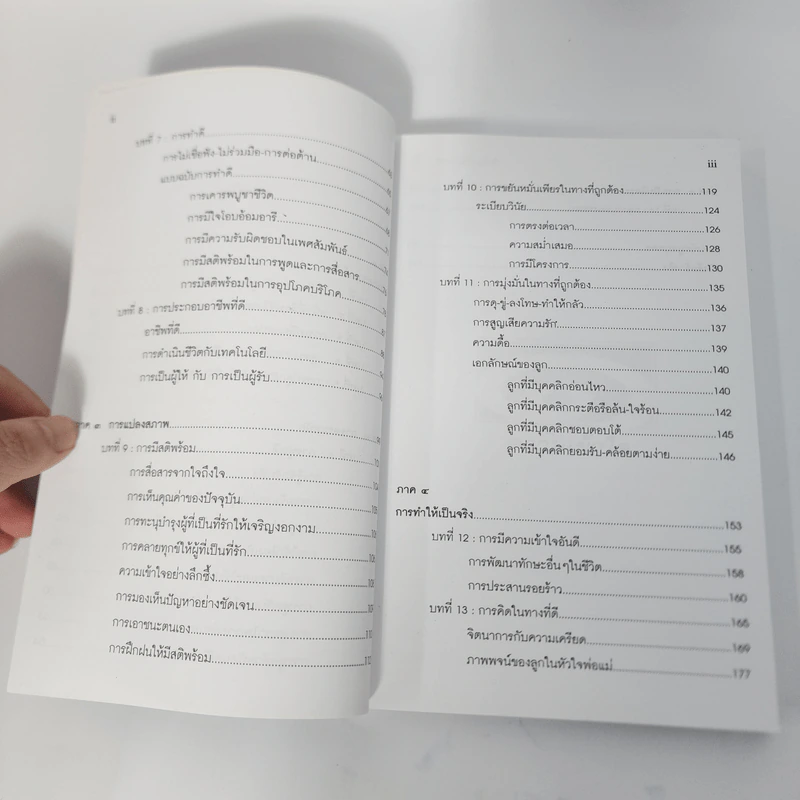 บทที่ 7 : การทำดี
การไม่เชื่อฟัง-ไม่ร่วมมือ-การต่อต้าน
แบบฉบับการทำดี
การเคารพบูชาชีวิต
การมีใจโอบอ้อมอารี
การมีความรับผิดชอบในเพศสัมพันธ์
การมีสติพร้อมในการพูดและการสื่อสาร
การมีสติพร้อมในการอุปโภคบริโภค
บทที่ 8 : การประกอบอาชีพที่ดี
อาชีพที่ดี
การดำเนินชีวิตกับเทคโนโลยี
การเป็นผู้ให้ กับ การเป็นผู้รับ
ภาค ๓ การแปลงสภาพ
บทที่ 9 : การมีสติพร้อม
การสื่อสารจากใจถึงใจ
การเห็นคุณค่าของปัจจุบัน
การทะนุบำรุงผู้ที่เป็นที่รักให้เจริญงอกงาม
การคลายทุกข์ให้ผู้ที่เป็นที่รัก
ความเข้าใจอย่างลึกซึ้ง
การมองเห็นปัญหาอย่างชัดเจน
การเอาชนะตนเอง
การฝึกฝนให้มีสติพร้อม
iii
บทที่ 10 : การขยันหมั่นเพียรในทางที่ถูกต้อง 119
ระเบียบวินัย 124
การตรงต่อเวลา 126
ความสม่ำเสมอ 128
การมีโครงการ 130
บทที่ 11 : การมุ่งมั่นในทางที่ถูกต้อง 135
การดุ-ขู่-ลงโทษ-ทำให้กลัว 136
การสูญเสียความรัก 137
ความดื้อ 139
เอกลักษณ์ของลูก 140
ลูกที่มีบุคคลิกอ่อนไหว 140
ลูกที่มีบุคคลิกกระตือรือล้น-ใจร้อน 142
ลูกที่มีบุคคลิกชอบตอบโต้ 145
ลูกที่มีบุคคลิกยอมรับ-คล้อยตามง่าย 146
ภาค ๔
การทำให้เป็นจริง 153
บทที่ 12 : การมีความเข้าใจอันดี 155
การพัฒนาทักษะอื่นๆในชีวิต 158
การประสานรอยร้าว 160
บทที่ 13 : การคิดในทางที่ดี 165
จิตนาการกับความเครียด 169
ภาพพจน์ของลูกในหัวใจพ่อแม่ 177